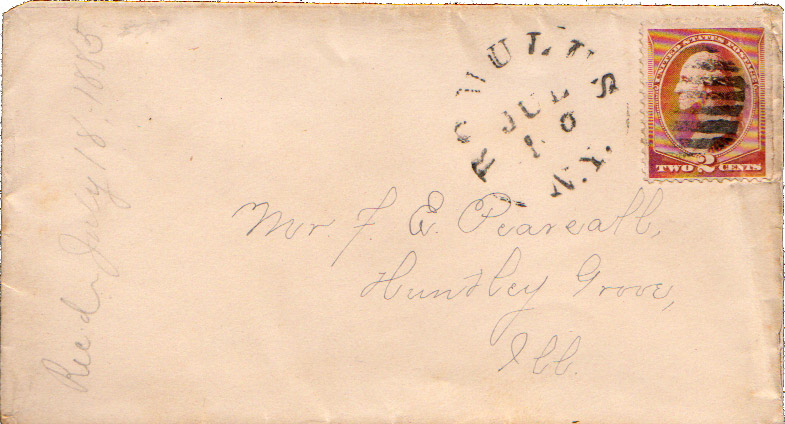 ROMULUS
N.Y.
JUL
10
UNITED STATES POSTAGE
TWO 2 CENTS
Mr. F. E. Pearsall,
Huntley Grove,
Ill.
Rec'd July 18.-1885